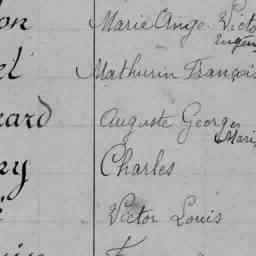 on Marie Ange Victo
Eugèn
el Mathurin François
eard Auguste Georges
Mari
ry Charles
Victor Louis